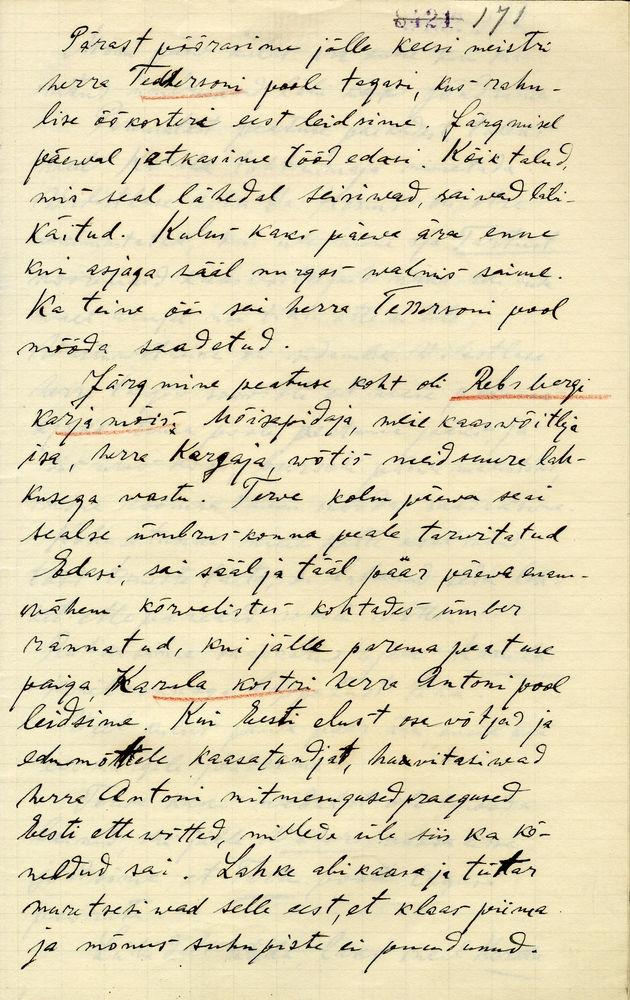 8421 171
Pärast pöörasime jälle keesi meistri
herra Tedersoni poole tagasi, kus rahu-
lise öökorteri eest leidsime. Järgmisel
päewal jatkasime tööd edasi. Kõik talud,
mis seal lähedal seisiwad, saiwad läbi-
käitud. Kulus kaks päewa ära enne
kui asjaga sääl nurgas walmis saime.
Ka teine öö sai herra Tedersoni pool
mööda saadetud.
Järgmine peatuse koht oli Rebsbergi
karjamõis. Mõisapidaja, meie kaaswõitleja
isa, herra Kargaja, wõtis meid suure lah-
kusega vastu. Terve kolm päewa sai
sealse ümbruskonna peale tarwitatud
Edasi, sai sääl ja tääl päär päewa enam-
wähem kõrwalistes kohtades ümber
rännatud, kui jälle parema peatuse
paiga, Karula köstri herra Antoni pool
leidsime. Kui Eesti elust osa võtjad ja
edumõttele kaasatundjat, huvitasiwad
herra Antoni mitmesugused praegused
Eesti ettewõtted, millede üle siis ka kõ-
neldud sai. Lahke abikaasa ja tütar
muretsesiwad selle eest, et klaas piima
ja mõnus suhupiste ei puudunud.